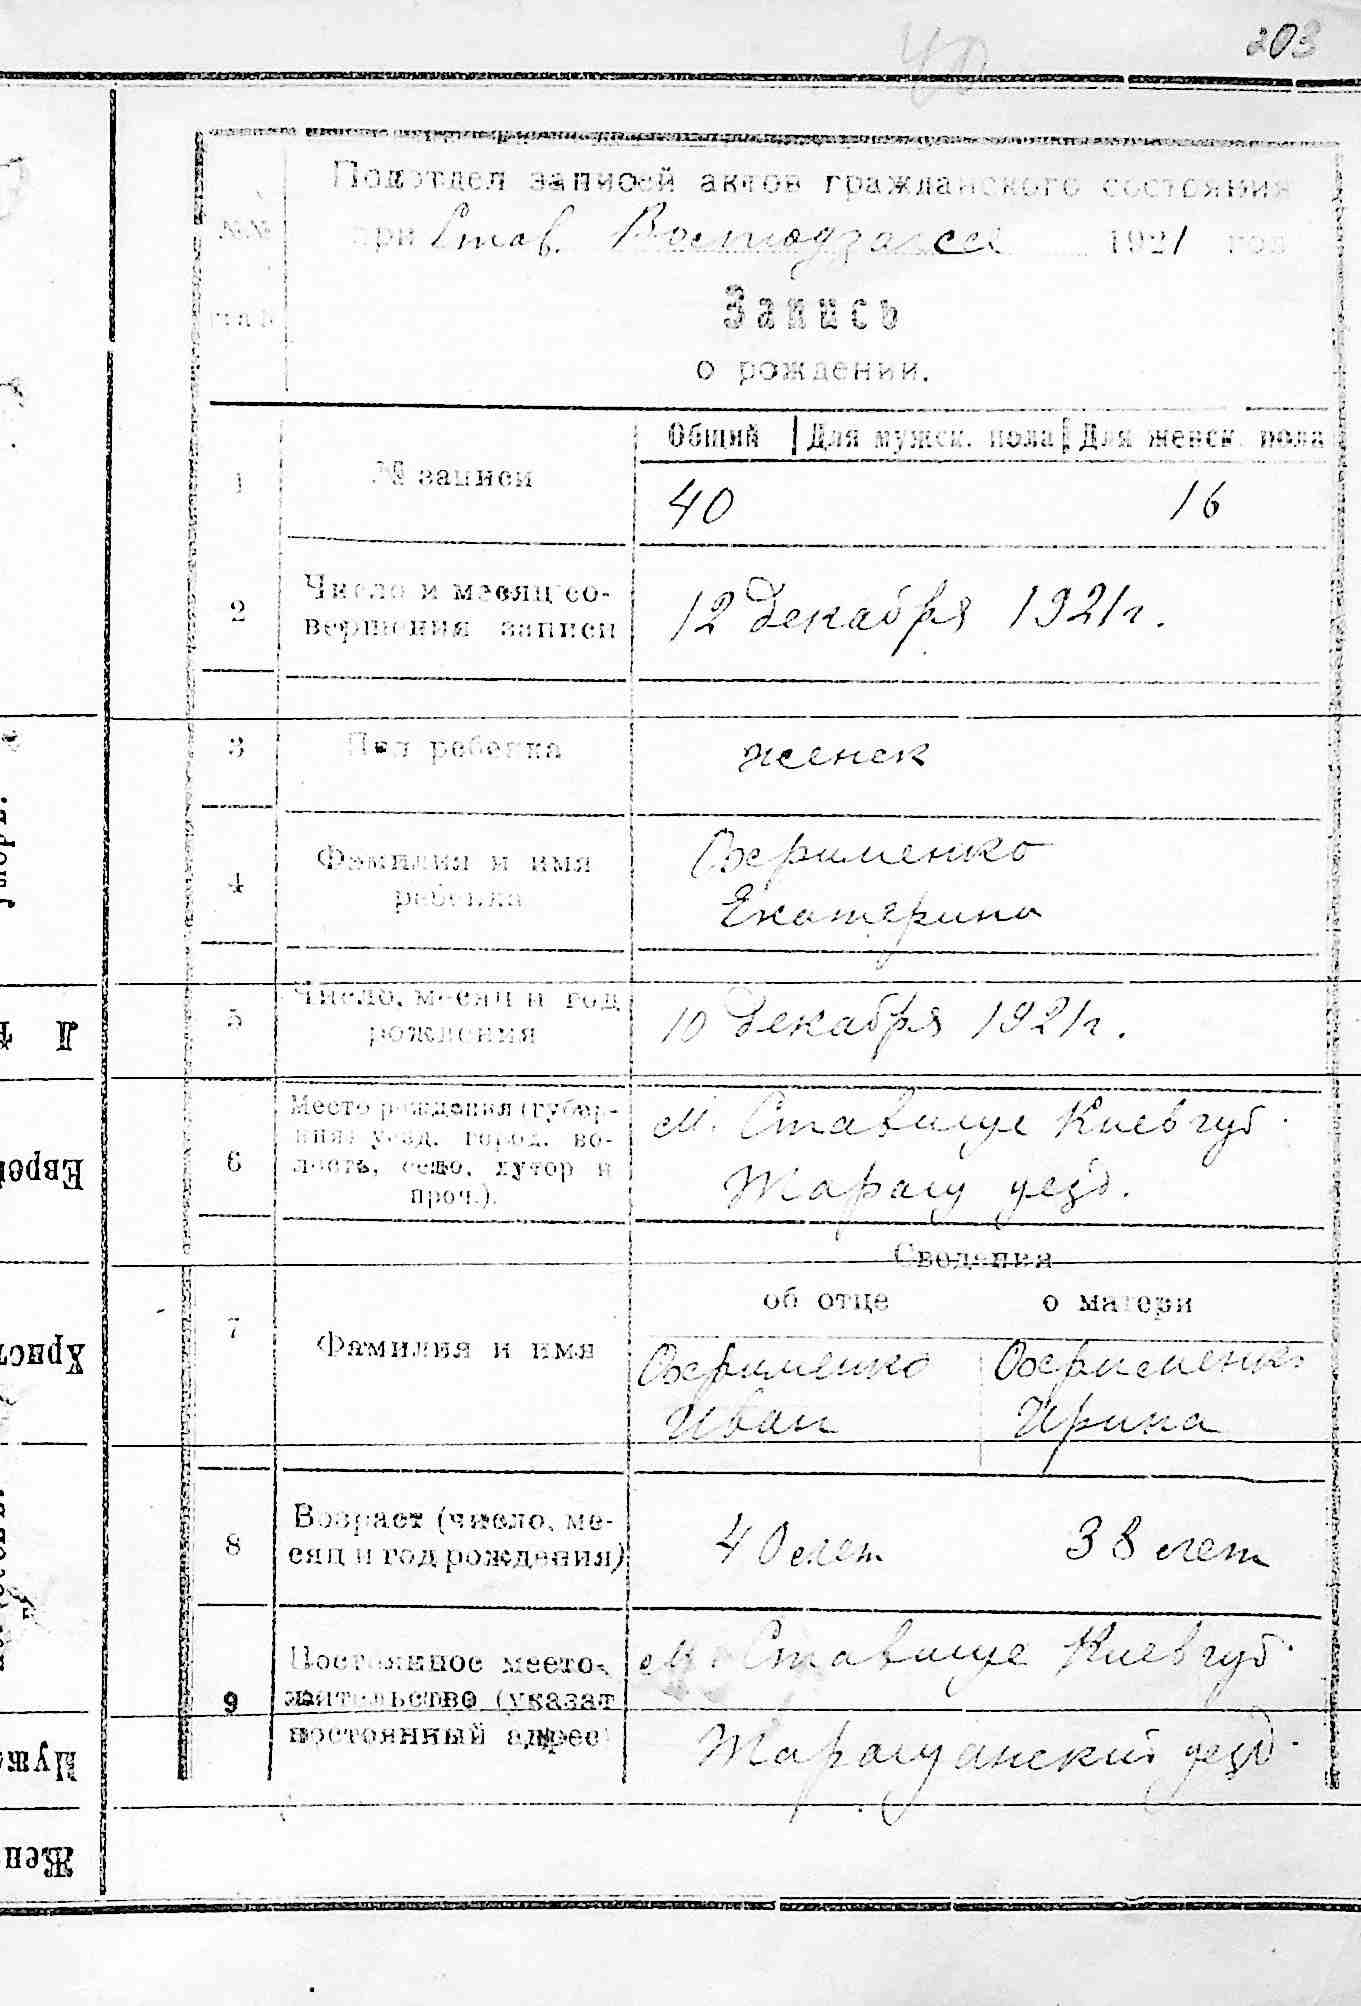 203
40
Подотдел записей актов гражданского состояния
при Став. 1921 год
№№
Запись
о рождении.
Общий Для мужск. пола Для женск. пола
1 № записи 40 16
2 Число и месяц со-
вершения записи 12 Декабря 1921 г.
3 Пол ребенка женск
4 Фамилия и имя
ребенка Охрименко
Екатерина
5 Число, месяц и год
рождения 10 Декабря 1921 г.
6 Место рождения (губер-
ния, уезд, город, во-
лость, село, хутор и
проч.). м. Ставище Киев губ.
Таращ уезд.
Сведения
об отце о матери
7 Фамилия и имя
Охрименко Охрименко
Иван Ирина
8 Возраст (число, ме-
сяц и год рождения) 40 лет 38 лет
9 Постоянное место-
жительство (указат
постоянный адрес) м. Ставище Киев губ.
Таращанский уезд.
Еврей
Христ
Мужс
Жен